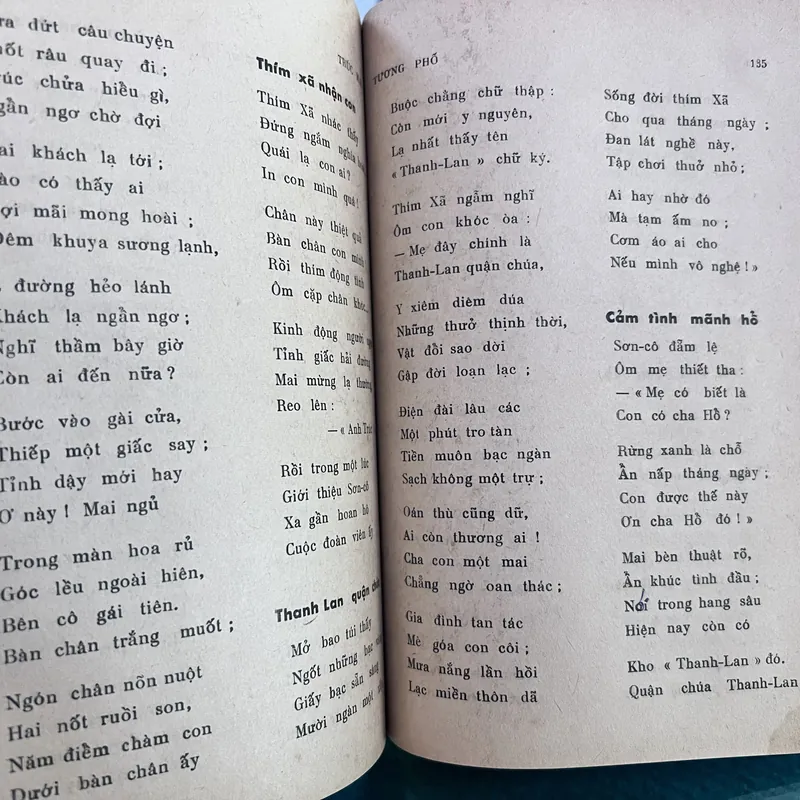 dứt câu chuyện
râu quay đi ;
chửa hiểu gì,
ngần ngơ chờ đợi
khách lạ tới ;
có thấy ai
mãi mong hoài ;
Đêm khuya sương lạnh,
đường hẻo lánh
Khách lạ ngần ngơ ;
Nghĩ thầm bây giờ
Còn ai đến nữa ?
Bước vào gài cửa,
Thiếp một giấc say ;
Tỉnh dậy mới hay
Ơ này ! Mai ngủ
Trong màn hoa rủ
Góc lều ngoài hiên,
Bên cô gái tiên.
Bàn chân trắng muốt ;
Ngón chân nõn nuột
Hai nốt ruồi son,
Năm điềm chàm con
Dưới bàn chân ấy
Thím xã nhận con
Thím Xã nhác thấy
Đứng ngắm
Quái lạ con ai ?
In con mình quá !
Chân này thiệt quả
Bàn chân con mình
Rồi thím động tình
Ôm cặp chân khóc...
Kinh động người
Tỉnh giấc hải đường
Mai mừng lạ thường
Reo lên :
— « Anh
Rồi trong một lúc
Giới thiệu Sơn-cô
Xa gần hoan hô
Cuộc đoàn viên ấy
Thanh Lan quận chúa
Mở bao túi thấy
Ngốt những bạc
Giấy bạc sẵn sàng
Mười ngàn một
TƯƠNG PHỐ
135
Buộc chằng chữ thập :
Còn mới y nguyên,
Lạ nhất thấy tên
« Thanh-Lan » chữ ký.
Thím Xã ngẫm nghĩ
Ôm con khóc òa :
— Mẹ đây chinh là
Thanh-Lan quận chúa,
Y xiêm diêm dúa
Những thưở thịnh thời,
Vật đồi sao dời
Gặp đời loạn lạc ;
Điện đài lâu các
Một phút tro tàn
Tiền muôn bạc ngàn
Sạch không một trự ;
Oán thù cũng dữ,
Ai còn thương ai !
Cha con một mai
Chẳng ngờ oan thác ;
Gia đình tan tác
Mè góa con côi ;
Mưa nắng lần hồi
Lạc miền thôn dã
Sống đời thím Xã
Cho qua tháng ngày ;
Đan lát nghề này,
Tập chơi thuở nhỏ ;
Ai hay nhờ đó
Mà tạm ấm no ;
Cơm áo ai cho
Nếu mình vô nghệ ! »
Cảm tình mãnh hồ
Sơn-cô đẫm lệ
Ôm mẹ thiết tha :
— « Mẹ có biết là
Con có cha Hồ ?
Rừng xanh là chỗ
Ần nấp tháng ngày ;
Con được thế này
Ơn cha Hồ đó ! »
Mai bèn thuật rõ,
Ần khúc tình đầu ;
Nơi trong hang sâu
Hiện nay còn có
Kho « Thanh-Lan » đó.
Quận chúa Thanh-Lan